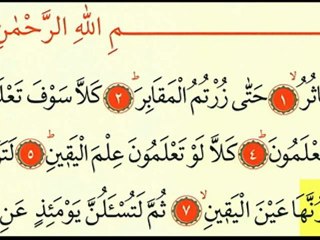 مِ اللهِ الرَّحْمٰنِ
اثُرُ ۙ ﴿١﴾ حَتّٰى زُرْتُمُ الْمَقَابِرَ ؕ ﴿٢﴾ كَلَّا سَوْفَ تَعْلَ
عْلَمُونَ ؕ ﴿٤﴾ كَلَّا لَوْ تَعْلَمُونَ عِلْمَ الْيَقِينِ ؕ ﴿٥﴾ لَتَرَ
وُنَّهَا عَيْنَ الْيَقِينِ ۙ ﴿٧﴾ ثُمَّ لَتُسْـَٔلُنَّ يَوْمَئِذٍ عَنِ